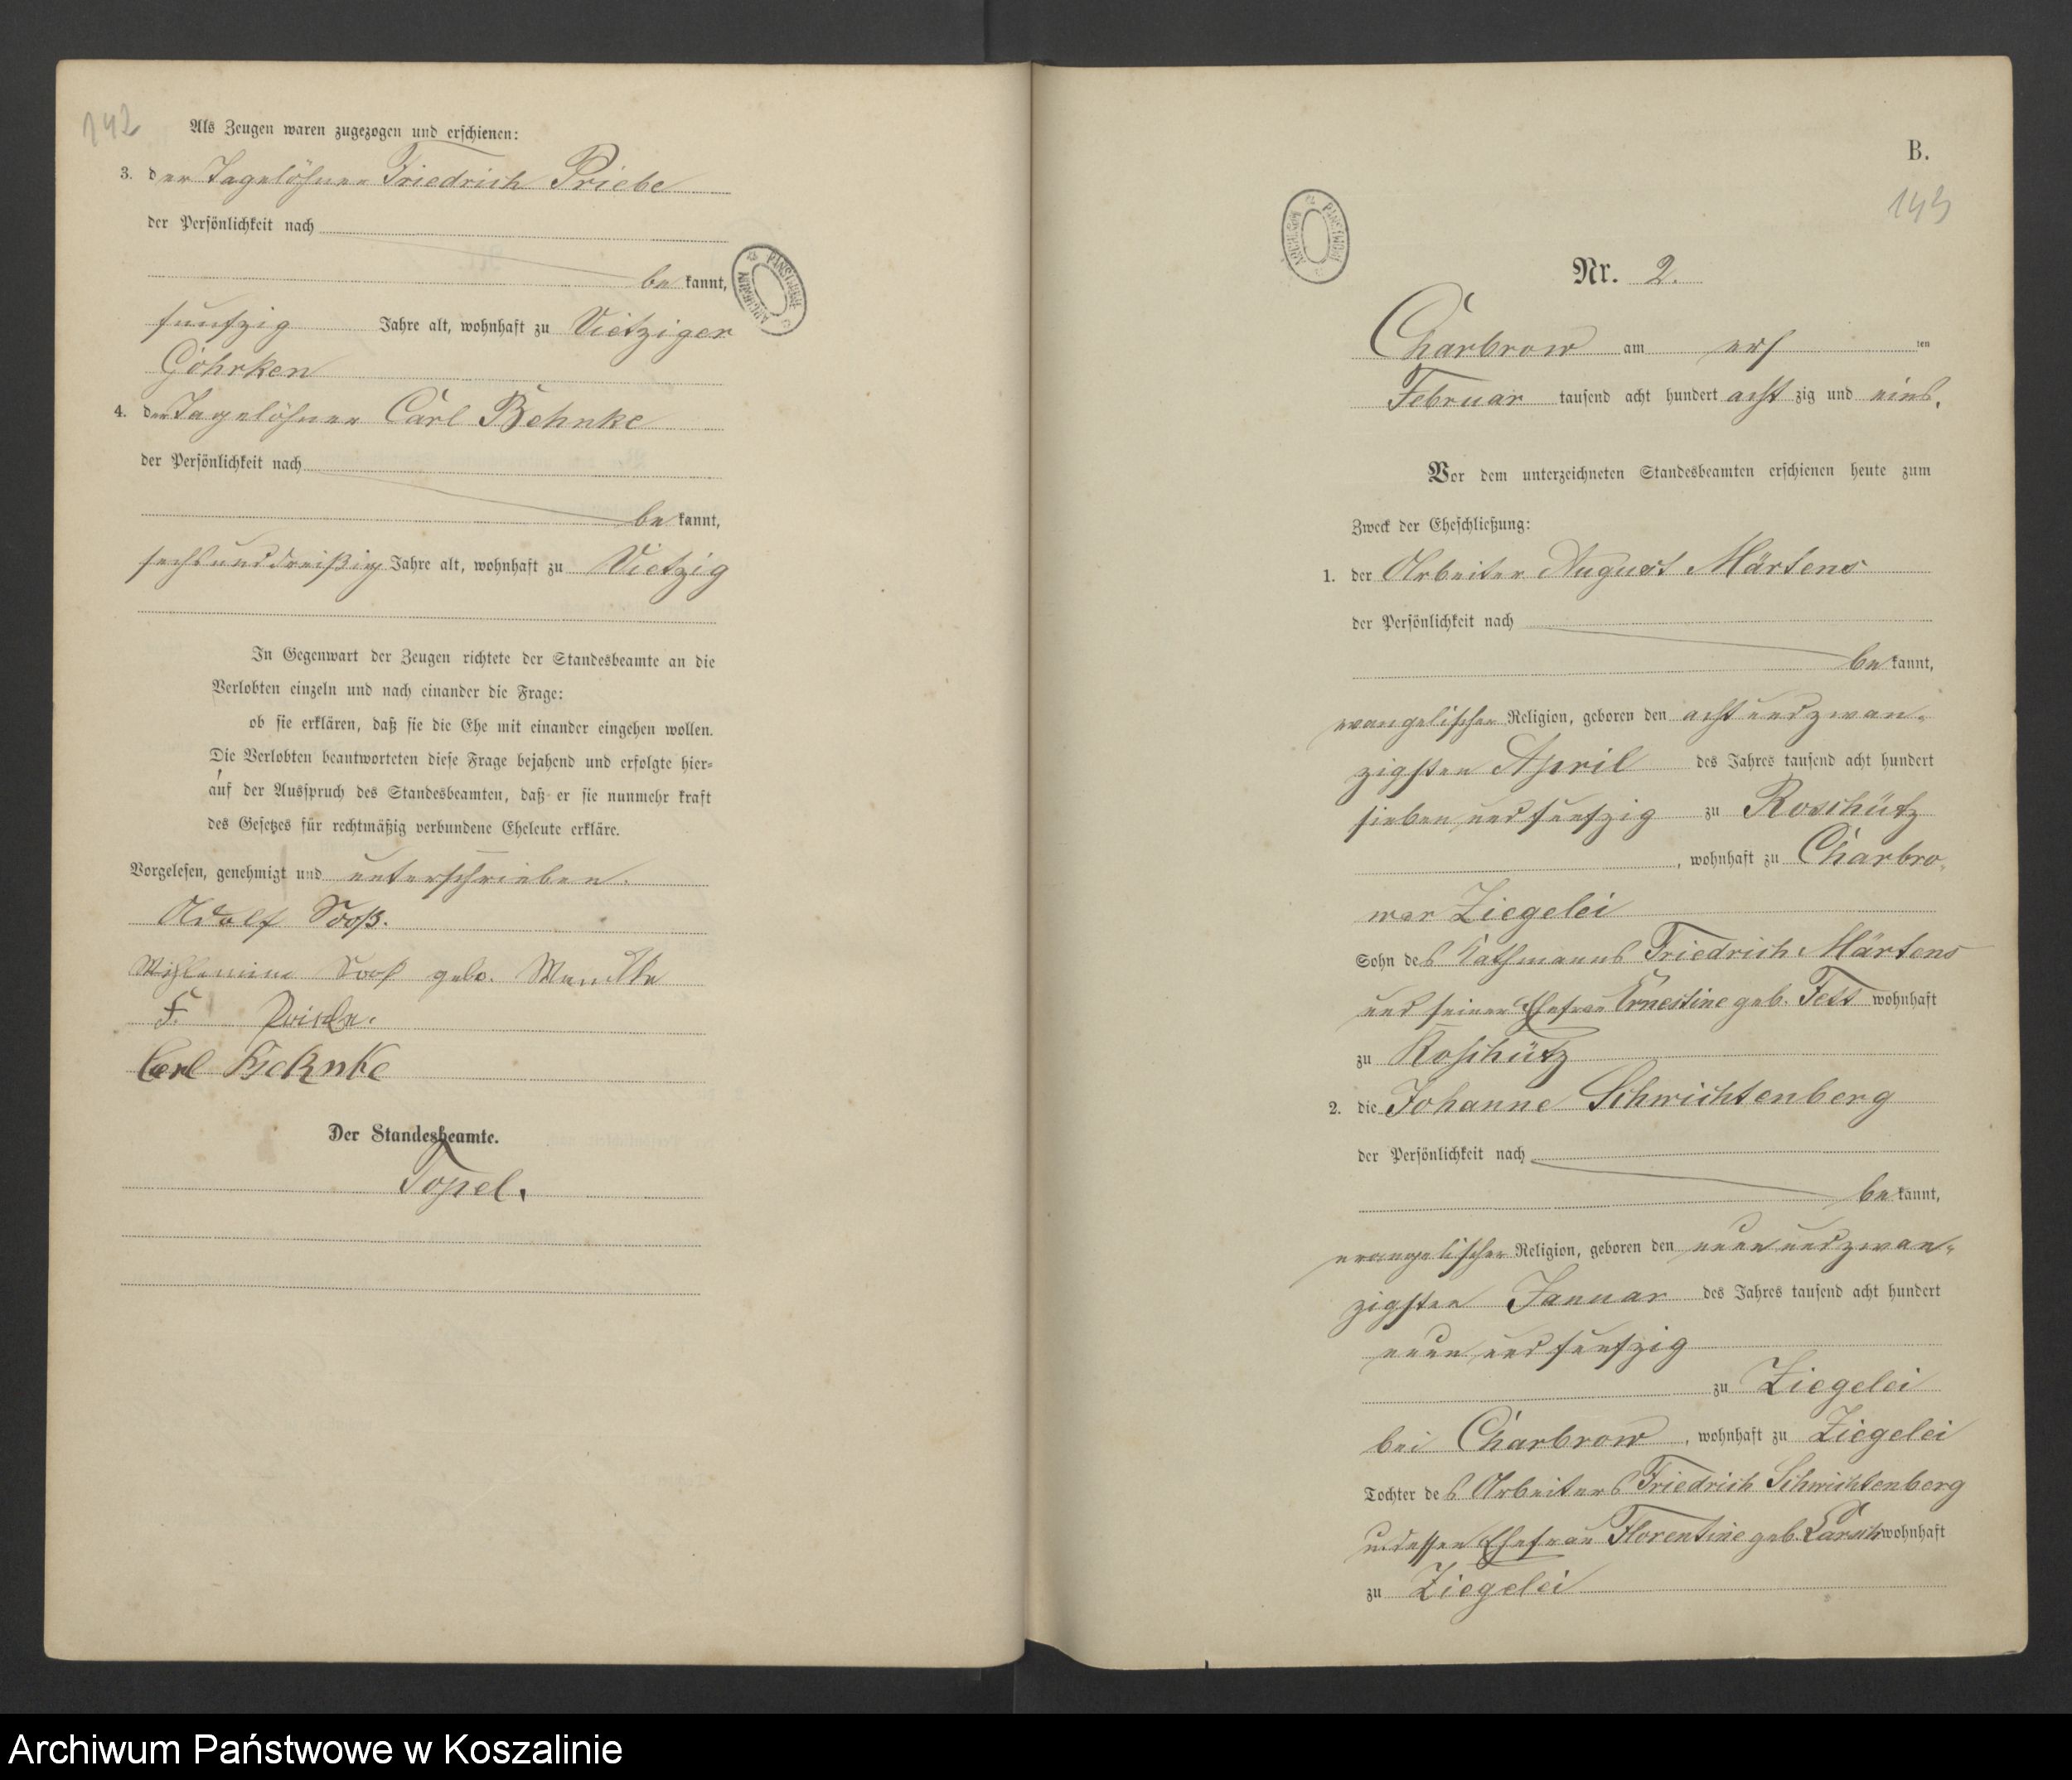 142
Als Zeugen waren zugezogen und erschienen:
3. der Tagelöhner Friedrich Priebe
der Persönlichkeit nach
be kannt,
funfzig Jahre alt, wohnhaft zu Vietziger
Göhrken
4. der Tagelöhner Carl Behnke
der Persönlichkeit nach
be kannt,
sechsunddreißig Jahre alt, wohnhaft zu Vietzig
In Gegenwart der Zeugen richtete der Standesbeamte an die
Verlobten einzeln und nach einander die Frage:
ob sie erklären, daß sie die Ehe mit einander eingehen wollen.
Die Verlobten beantworteten diese Frage bejahend und erfolgte hier=
auf der Ausspruch des Standesbeamten, daß er sie nunmehr kraft
des Gesetzes für rechtmäßig verbundene Eheleute erkläre.
Vorgelesen, genehmigt und unterschrieben.
Adolf Sooß.
Sooß geb.
F. Priebe.
Carl Behnke
Der Standesbeamte.
Topel.
B.
143
Nr. 2.
Charbrow am ers ten
Februar tausend acht hundert acht zig und eins.
Vor dem unterzeichneten Standesbeamten erschienen heute zum
Zweck der Eheschließung:
1. der Arbeiter August Märtens
der Persönlichkeit nach
be kannt,
evangelischer Religion, geboren den acht und zwan-
zigsten April des Jahres tausend acht hundert
sieben und funfzig zu Roschütz
, wohnhaft zu Charbro-
wer Ziegelei
Sohn des Kathmanns Friedrich Märtens
und seiner Ehefrau Ernestine geb. Fett wohnhaft
zu Roschütz
2. die Johanne Schwichtenberg
der Persönlichkeit nach
be kannt,
evangelischer Religion, geboren den neun und zwan-
zigsten Januar des Jahres tausend acht hundert
neun und funfzig
zu Ziegelei
bei Charbrow, wohnhaft zu Ziegelei
Tochter des Arbeiters Friedrich Schwichtenberg
u. dessen Ehefrau Florentine geb. wohnhaft
zu Ziegelei
Archiwum Państwowe w Koszalinie